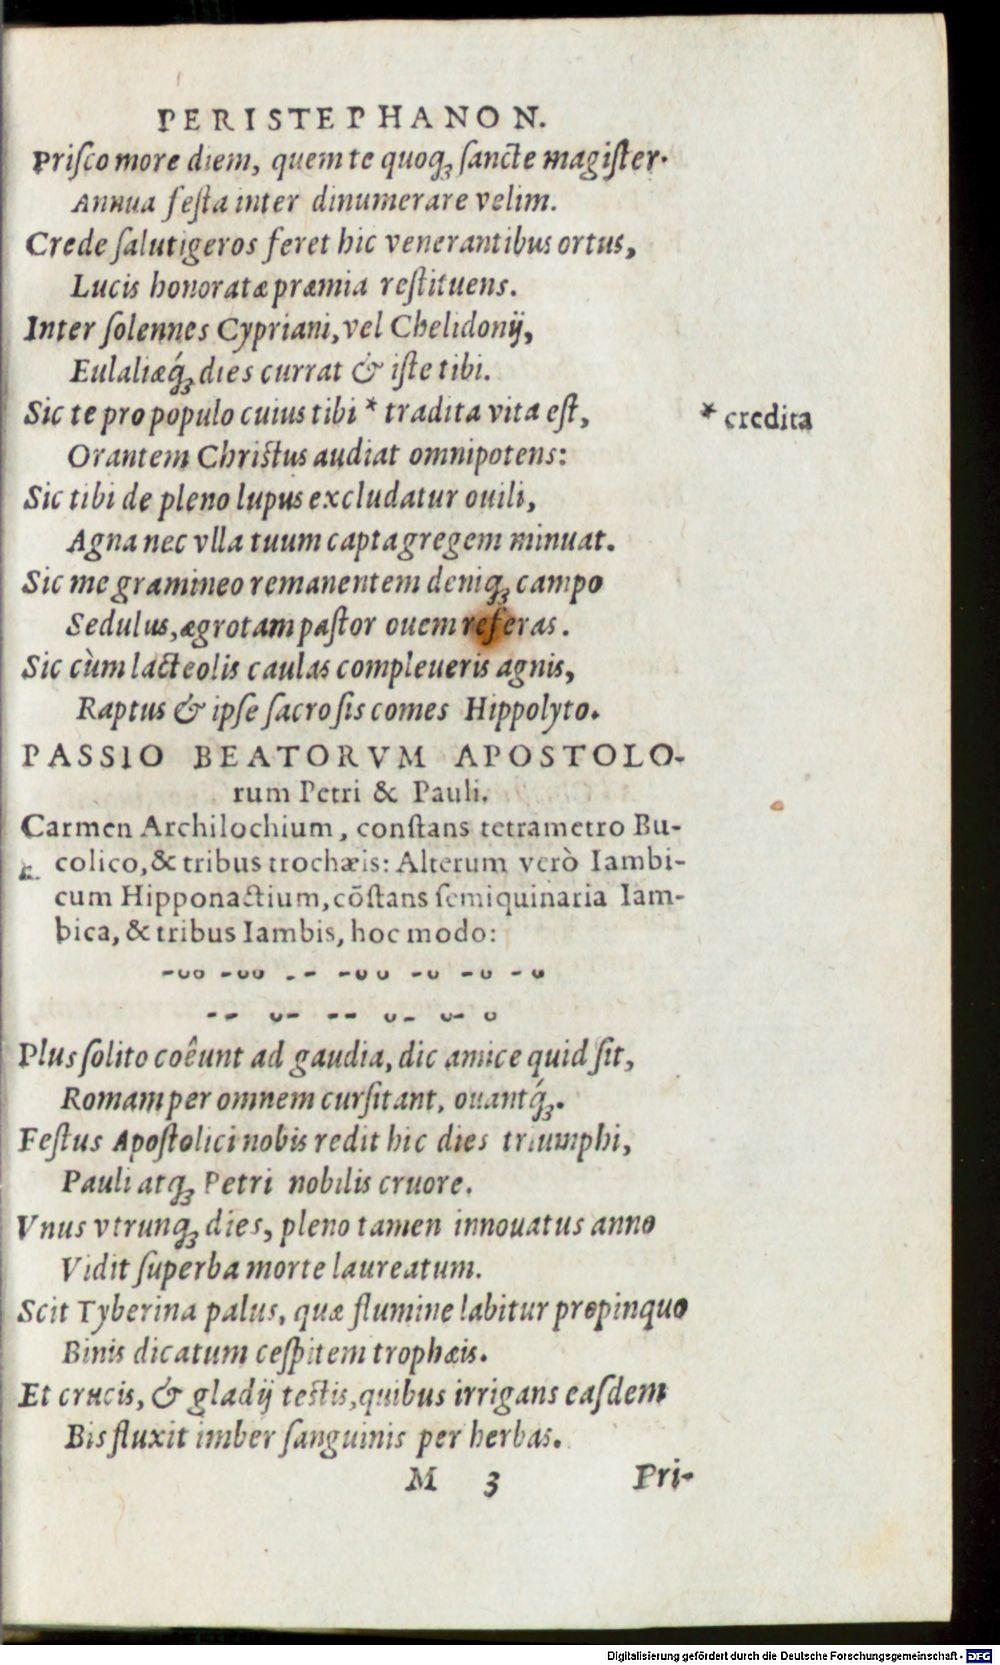 PERISTEPHANON.
Priſco more diem, quem te quoqꝫ ſancte magiſter.
Annua feſta inter dinumerare velim.
Crede ſalutigeros feret hic venerantibus ortus,
Lucis honoratæ præmia reſtituens.
Inter ſolennes Cypriani, vel Chelidonij,
Eulaliæq́ꝫ dies currat & iſte tibi.
Sic te pro populo cuius tibi * tradita vita eſt,
* credita
Orantem Chriſtus audiat omnipotens:
Sic tibi de pleno lupus excludatur ouili,
Agna nec vlla tuum capta gregem minuat.
Sic me gramineo remanentem deniqꝫ campo
Sedulus, ægrotam paſtor ouem referas.
Sic cùm lacteolis caulas compleueris agnis,
Raptus & ipſe ſacro ſis comes Hippolyto.
PASSIO BEATORVM APOSTOLO-
rum Petri & Pauli.
Carmen Archilochium, conſtans tetrametro Bu-
colico, & tribus trochæis: Alterum verò Iambi-
cum Hipponactium, cõſtans ſemiquinaria Iam-
bica, & tribus Iambis, hoc modo:
-ᴗᴗ -ᴗᴗ -- -ᴗᴗ -ᴗ -ᴗ -ᴗ
-- ᴗ- -- ᴗ- ᴗ- ᴗ
Plus ſolito coêunt ad gaudia, dic amice quid ſit,
Romam per omnem curſitant, ouantq́ꝫ.
Feſtus Apoſtolici nobis redit hic dies triumphi,
Pauli atqꝫ Petri nobilis cruore.
Vnus vtrunqꝫ dies, pleno tamen innouatus anno
Vidit ſuperba morte laureatum.
Scit Tyberina palus, quæ flumine labitur propinquo
Binis dicatum ceſpitem trophæis.
Et crucis, & gladij teſtis, quibus irrigans eaſdem
Bis fluxit imber ſanguinis per herbas.
M 3 Pri-
Digitalisierung gefördert durch die Deutsche Forschungsgemeinschaft - DFG